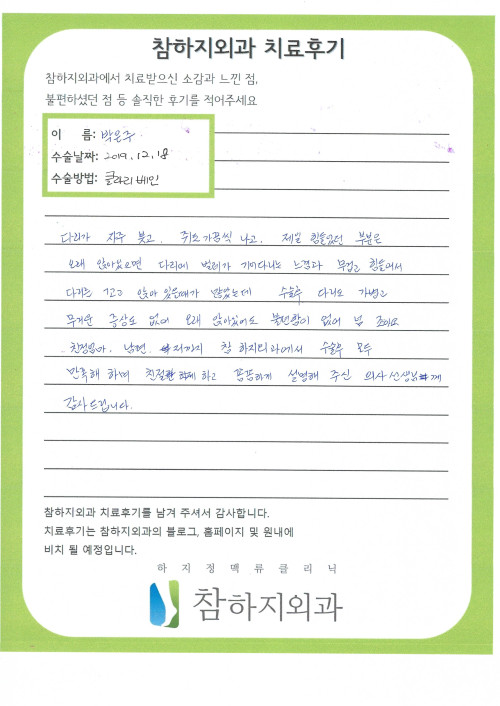 참하지외과 치료후기
참하지외과에서 치료받으신 소감과 느낀 점,
불편하셨던 점 등 솔직한 후기를 적어주세요
이 름: 박은주
수술날짜: 2019. 12. 18
수술방법: 클라리베인
다리가 자주 붓고, 쥐도 가끔씩 나고, 제일 힘들었던 부분은
오래 앉아있으면 다리에 벌레가 기어다니는 느낌과 무겁고 힘들어서
다리를 꼬고 앉아 있을때가 많았는데 수술후 다리도 가볍고
무거운 증상도 없어 오래 앉아있어도 불편함이 없어 넘 조아요
친정엄마, 남편, 저까지 참 하지외과에서 수술후 모두
만족해 하며 친절 하고 꼼꼼하게 설명해 주신 의사선생님께
감사드립니다.
참하지외과 치료후기를 남겨 주셔서 감사합니다.
치료후기는 참하지외과의 블로그, 홈페이지 및 원내에
비치 될 예정입니다.
하지정맥류클리닉
참하지외과